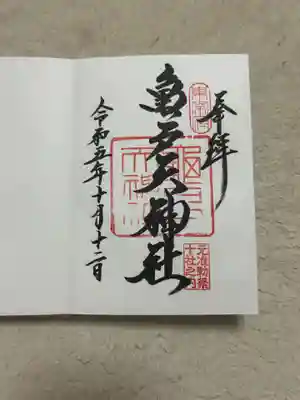 奉拝
亀戸天神社
令和五年十月十二日
東宰府
元准勅祭
十社之内